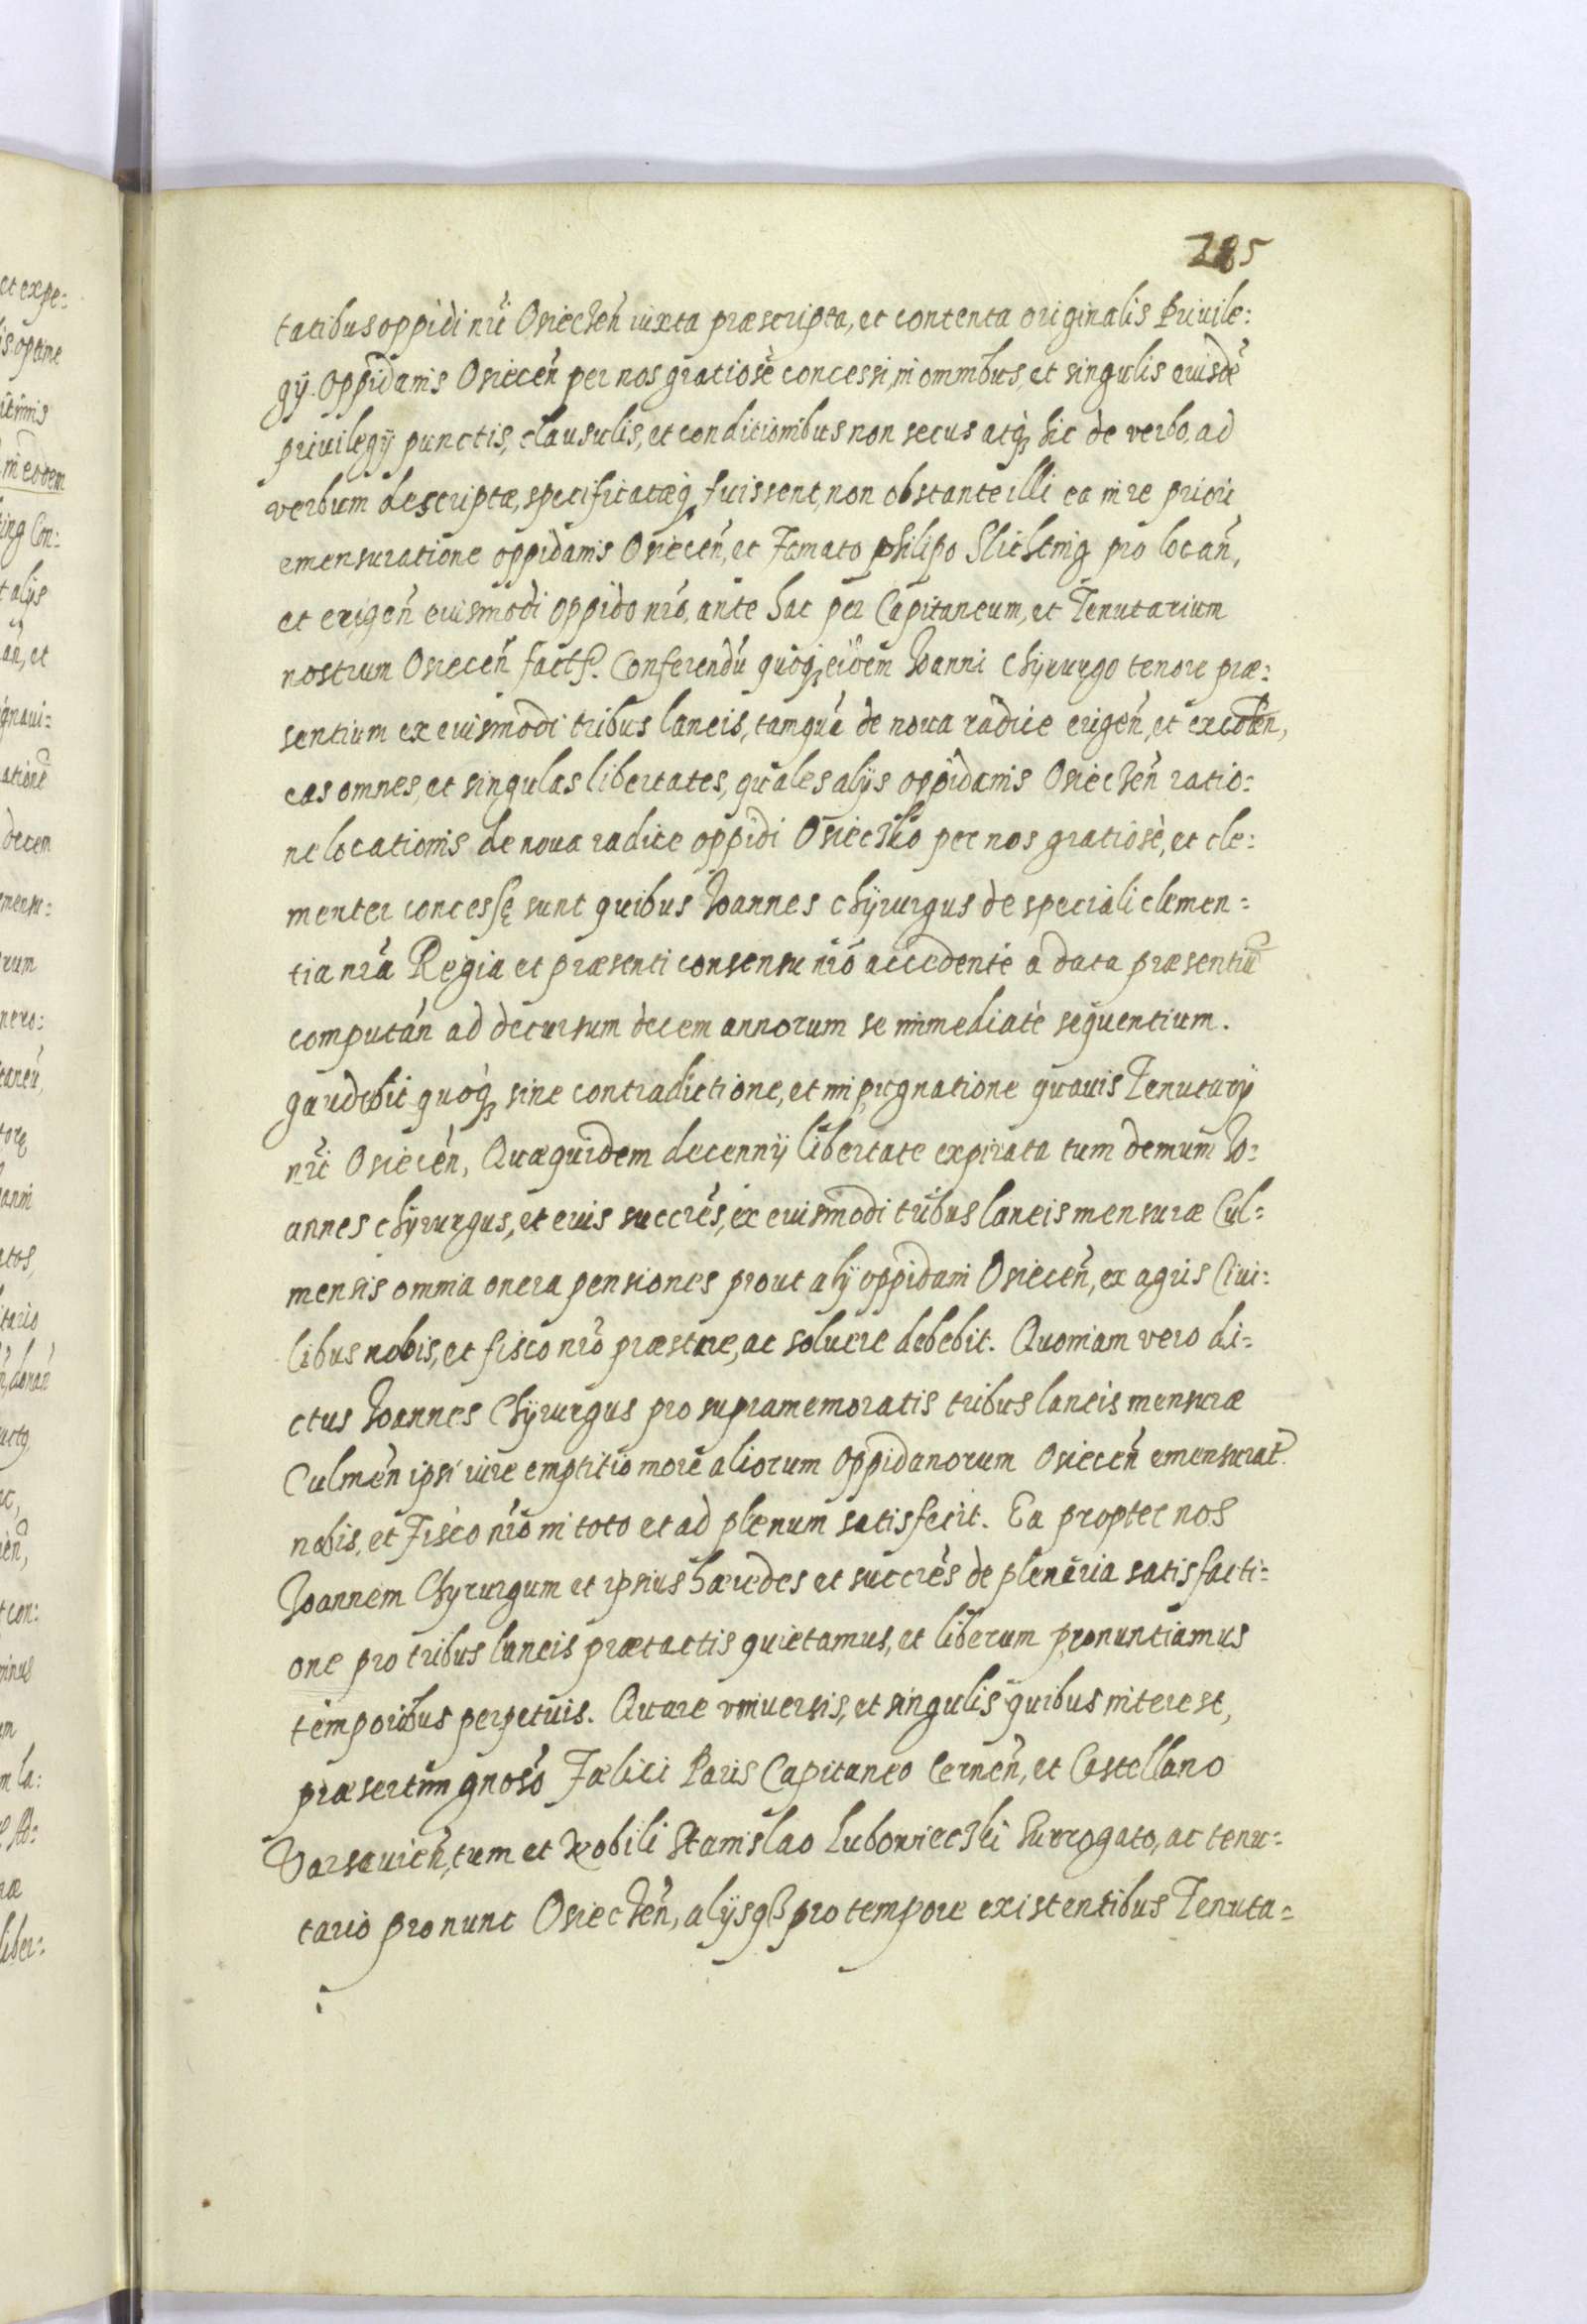 285
tatibus oppidi nrĩ Osiecken̄ iuxta præscripta, et contenta originalis Priuile:
gÿ. Oppidanis Osiecen̄ per nos gratiosè concessi, in omnibus, et singulis euisdẽ
priuilegÿ punctis, clausulis, et conditionibus non secus atq́ꝫ hic de verbo, ad
verbum descriptæ, specificatæq́ꝫ fuissent, non obstante illi ea in re priori
emensuratione oppidanis Osiecen̄, et Famato philipo Slichtnig pro locan̄,
et erigen̄ euismodi oppido nrõ, ante hac per Capitaneum, et Tenutarium
nostrum Osiecen̄ fact. Conferendũ quoq́ꝫ eidem Ioanni Chÿrurgo tenore præ:
sentium ex euismodi tribus laneis, tamquã de noua radice erigen̄, et excolen̄,
eas omnes, et singulas libertates, quales alÿs oppidanis Osiecken̄ ratio:
ne locationis de noua radice oppidi Osiecko per nos gratiosè, et cle:
menter concessę sunt quibus Ioannes chÿrurgus de speciali clemen:
tia nrã Regia et præsenti consensu nrõ accedente à data præsentiũ
computan̄ ad decursum decem annorum se immediatè sequentium.
gaudebit quoq́ꝫ sine contradictione, et impugnatione quauis Tenutarÿ
nrĩ Osiecen̄, Quæquidem decennÿ libertate expirata tum demum Io:
annes chÿrurgus, et euis succrẽs, ex euismodi tribus laneis mensuræ Cul:
mensis omnia onera pensiones prout alÿ oppidani Osiecen̄, ex agris Ciui:
libus nobis, et fisco nrõ præstare, ac soluere debebit. Quoniam vero di:
ctus Ioannes Chÿrurgus pro supramemoratis tribus laneis mensuræ
Culmen̄ ipsi iure emptitio more aliorum Oppidanorum Osiecen̄ emensurat
nobis, et Fisco nrõ in toto et ad plenum satisfecit. Ea propter nos
Ioannem Chyrurgum et ipsius hæredes et succrẽs de plenaria satisfacti:
one pro tribus laneis prætactis quietamus, et liberum pronuntiamus
temporibus perpetuis. Quare vniuersis, et singulis quibus interest,
præsertim gnosõ Fælici Paris Capitaneo Cernen̄, et Castellano
Varsauien̄, tum et Nobili Stanislao Lubowiecki Surrogato, ac tenu:
tario pro nunc Osiecken̄, alÿsqß pro tempore existentibus Tenuta: